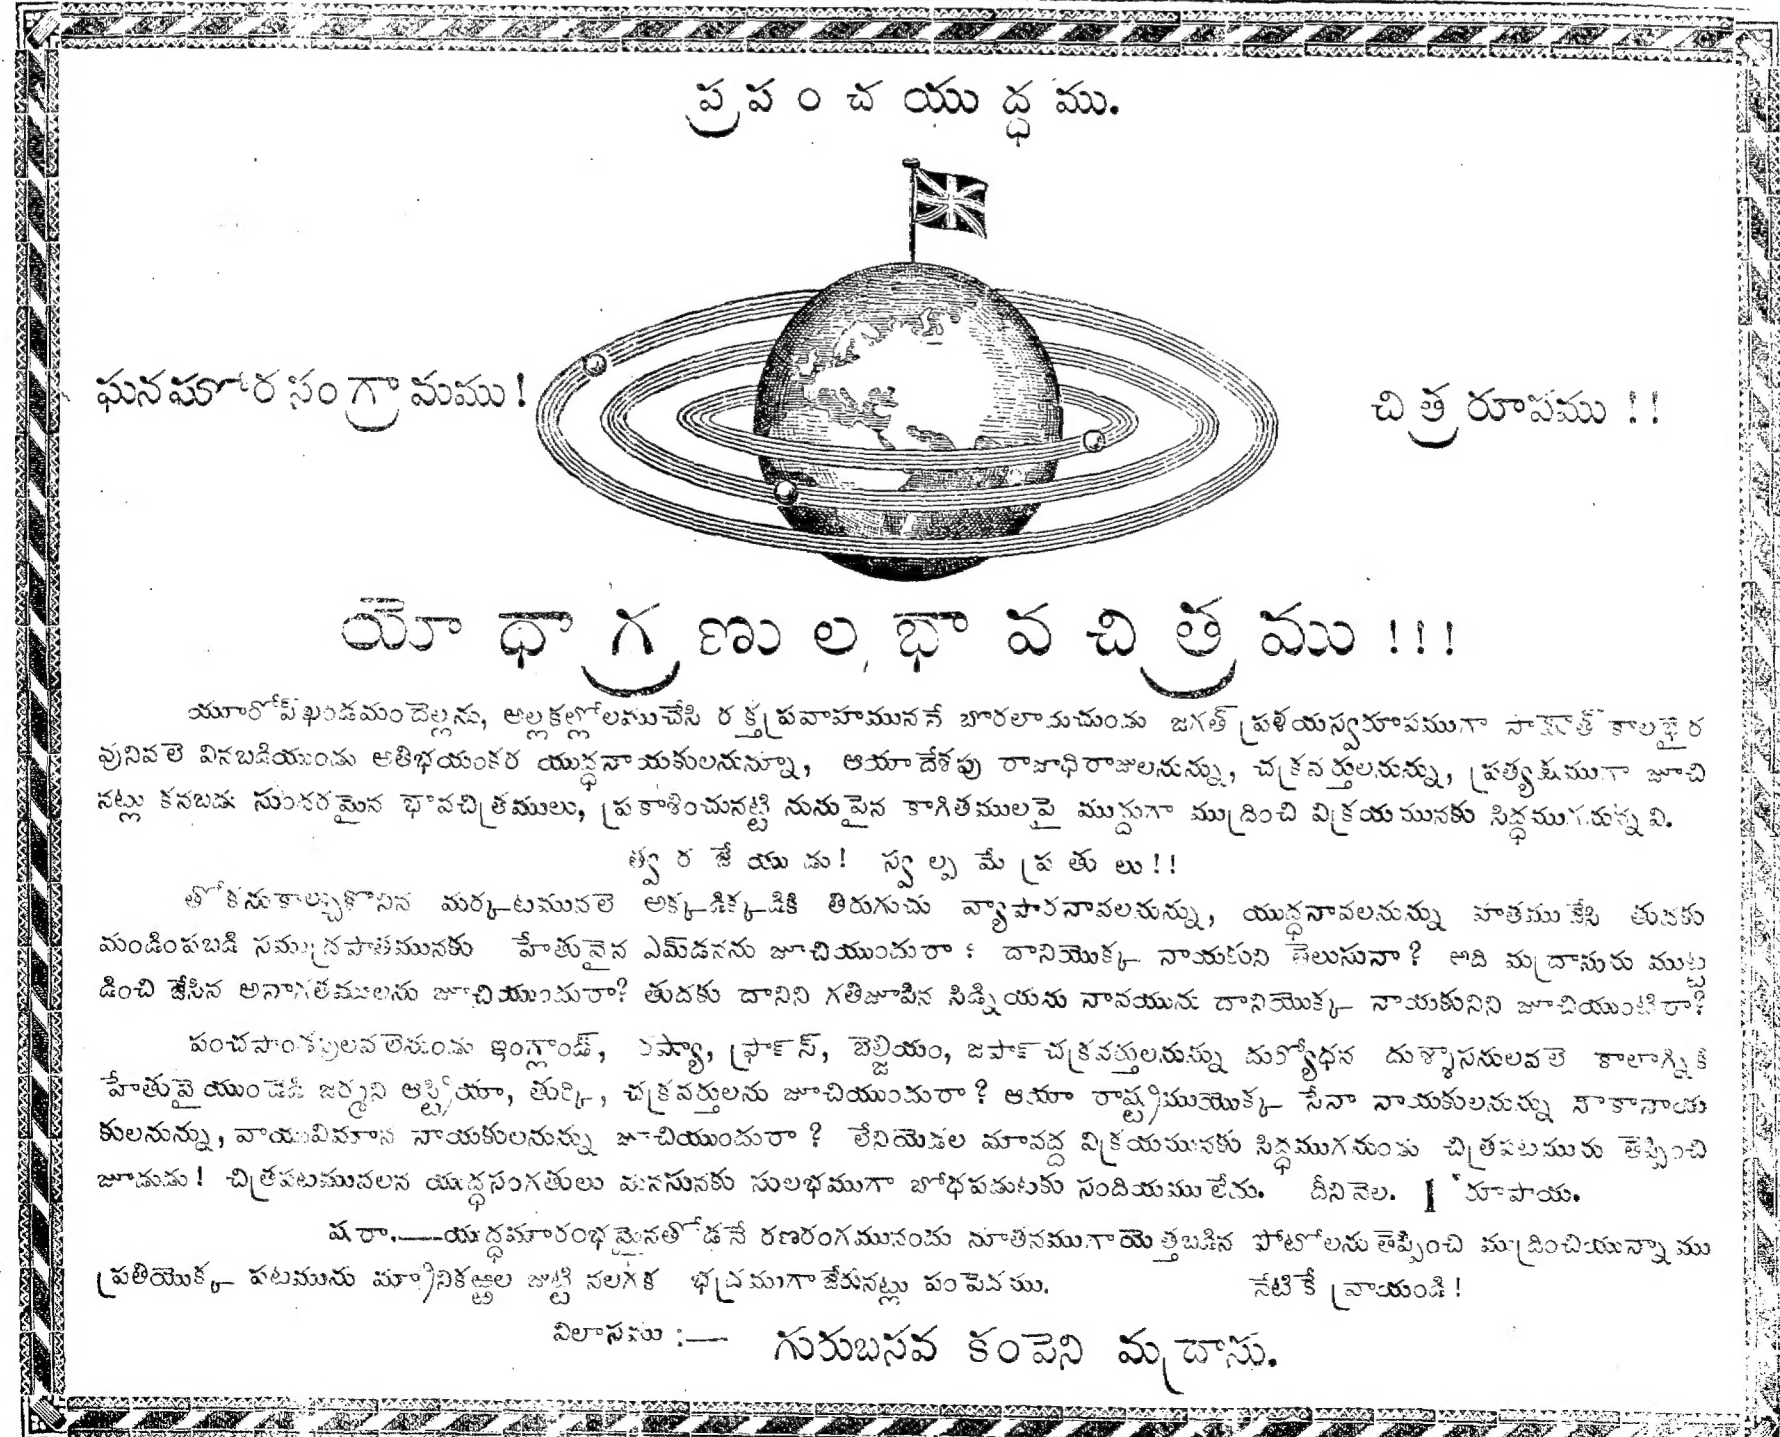 ప్రపంచయుద్ధము.
ఘనఘోరసంగ్రామము!
చిత్రరూపము!!
యోధాగ్రణుల భావచిత్రము!!!
యూరోప్‌ఖండమందెల్లను, అల్లకల్లోలముచేసి రక్తప్రవాహముననే బొరలాడుచుండు జగత్ప్రళయస్వరూపముగా సాక్షాత్ కాలభైర
వునివలె వినబడియుండు అతిభయంకర యుద్ధనాయకులనున్నూ, ఆయాదేశపు రాజాధిరాజులనున్ను, చక్రవర్తులనున్ను, ప్రత్యక్షముగా జూచి
నట్లు కనబడు సుందరమైన భావచిత్రములు, ప్రకాశించునట్టి నునుపైన కాగితములపై ముద్దుగా ముద్రించి విక్రయమునకు సిద్ధముగనున్నవి.
త్వరజేయుడు! స్వల్పమే ప్రతులు!!
తోకనుకాల్చుకొనిన మర్కటమువలె అక్కడిక్కడికి తిరుగుచు వ్యాపారనావలనున్ను, యుద్ధనావలనున్ను హతముజేసి తుదకు
మండింపబడి సముద్రపాతమునకు హేతువైన ఎమ్‌డనను జూచియుందురా? దానియొక్క నాయకుని తెలుసునా? అది మద్రాసును ముట్ట
డించి జేసిన అనాగతములను జూచియుందురా? తుదకు దానిని గతిజూపిన సిడ్నియను నావయును దానియొక్క నాయకునిని జూచియుంటిరా?
పంచపాండవులవలెనుండు ఇంగ్లాండ్, రష్యా, ఫ్రాన్స్, బెల్జియం, జపాన్ చక్రవర్తులనున్ను దుర్యోధన దుశ్శాసనులవలె కాలాగ్నికి
హేతువైయుండెడి జర్మని ఆస్ట్రియా, తుర్కి, చక్రవర్తులను జూచియుందురా? ఆయా రాష్ట్రముయొక్క సేనా నాయకులనున్ను నౌకానాయ
కులనున్ను, వాయువిమాన నాయకులనున్ను జూచియుందురా? లేనియెడల మావద్ద విక్రయమునకు సిద్ధముగనుండు చిత్రపటమును తెప్పించి
జూడుడు! చిత్రపటమువలన యుద్ధసంగతులు మనసునకు సులభముగా బోధపడుటకు సందియములేదు. దీనివెల. 1 రూపాయ.
షరా.—యుద్ధమారంభమైనతోడనే రణరంగమునందు నూతనముగాయెత్తబడిన ఫోటోలను తెప్పించి ముద్రించియున్నాము
ప్రతియొక్క పటమును మ్రానికఱ్ఱల జుట్టి నలగక భద్రముగాజేరునట్లు పంపెదము. నేటికే వ్రాయండి!
విలాసము :— గురుబసవ కంపెని మద్రాసు.